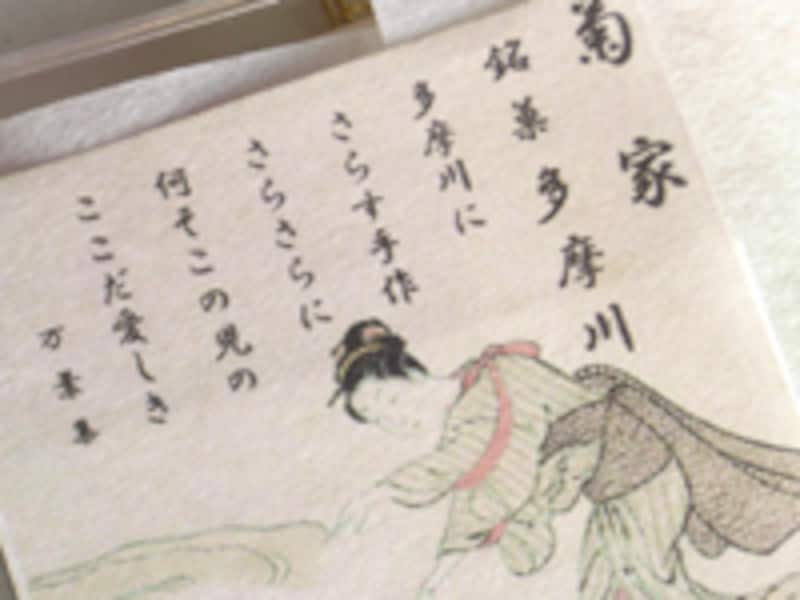 菊家
銘菓 多摩川
多摩川に
さらす手作
さらさらに
何そこの児の
ここだ愛しき
万葉集